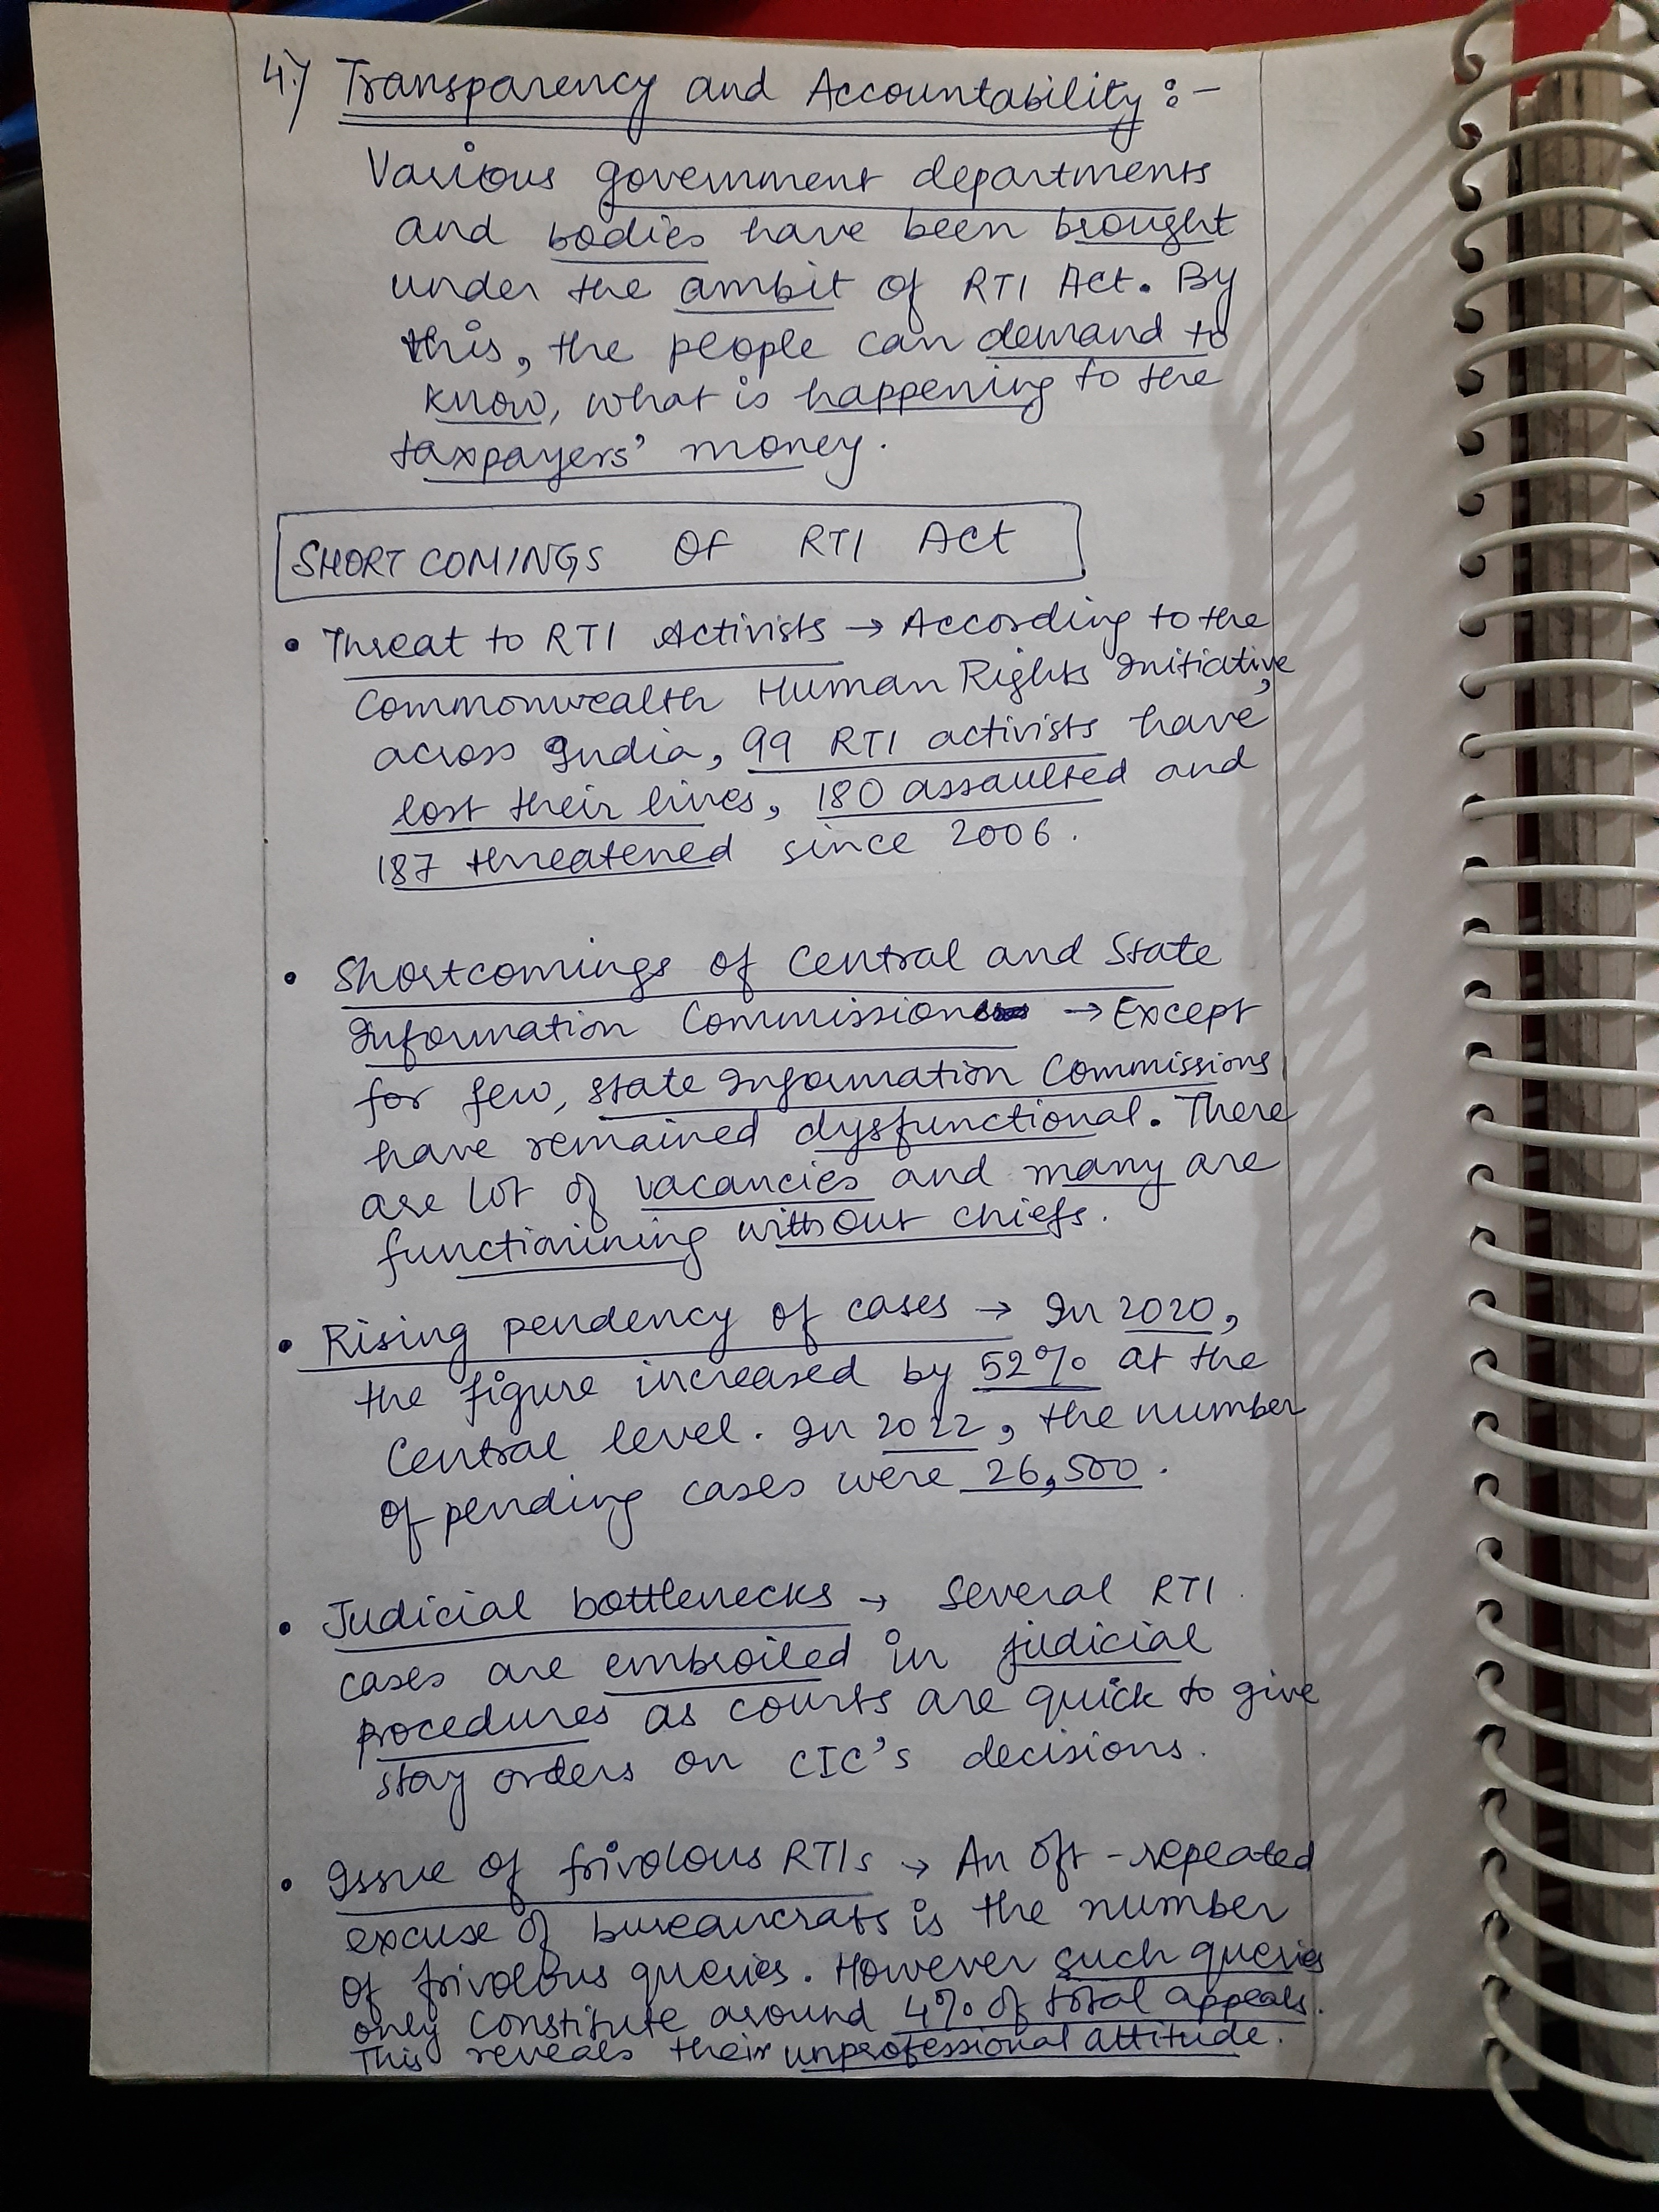 4.) Transparency and Accountability :-
Various government departments
and bodies have been brought
under the ambit of RTI Act. By
this, the people can demand to
know, what is happening to the
taxpayers' money.
SHORTCOMINGS OF RTI Act
• Threat to RTI Activists → According to the
Commonwealth Human Rights Initiative,
across India, 99 RTI activists have
lost their lives, 180 assaulted and
187 threatened since 2006.
• Shortcomings of Central and State
Information Commission → Except
for few, state Information Commissions
have remained dysfunctional. There
are lot of vacancies and many are
functionining without chiefs.
• Rising pendency of cases → In 2020,
the figure increased by 52% at the
Central level. In 2022, the number
of pending cases were 26,500.
• Judicial bottlenecks → Several RTI
cases are embroiled in judicial
procedures as courts are quick to give
stay orders on CIC's decisions.
• Issue of frivolous RTIs → An oft-repeated
excuse of bureaucrats is the number
of frivolous queries. However such queries
only constitute around 4% of total appeals.
This reveals their unprofessional attitude.